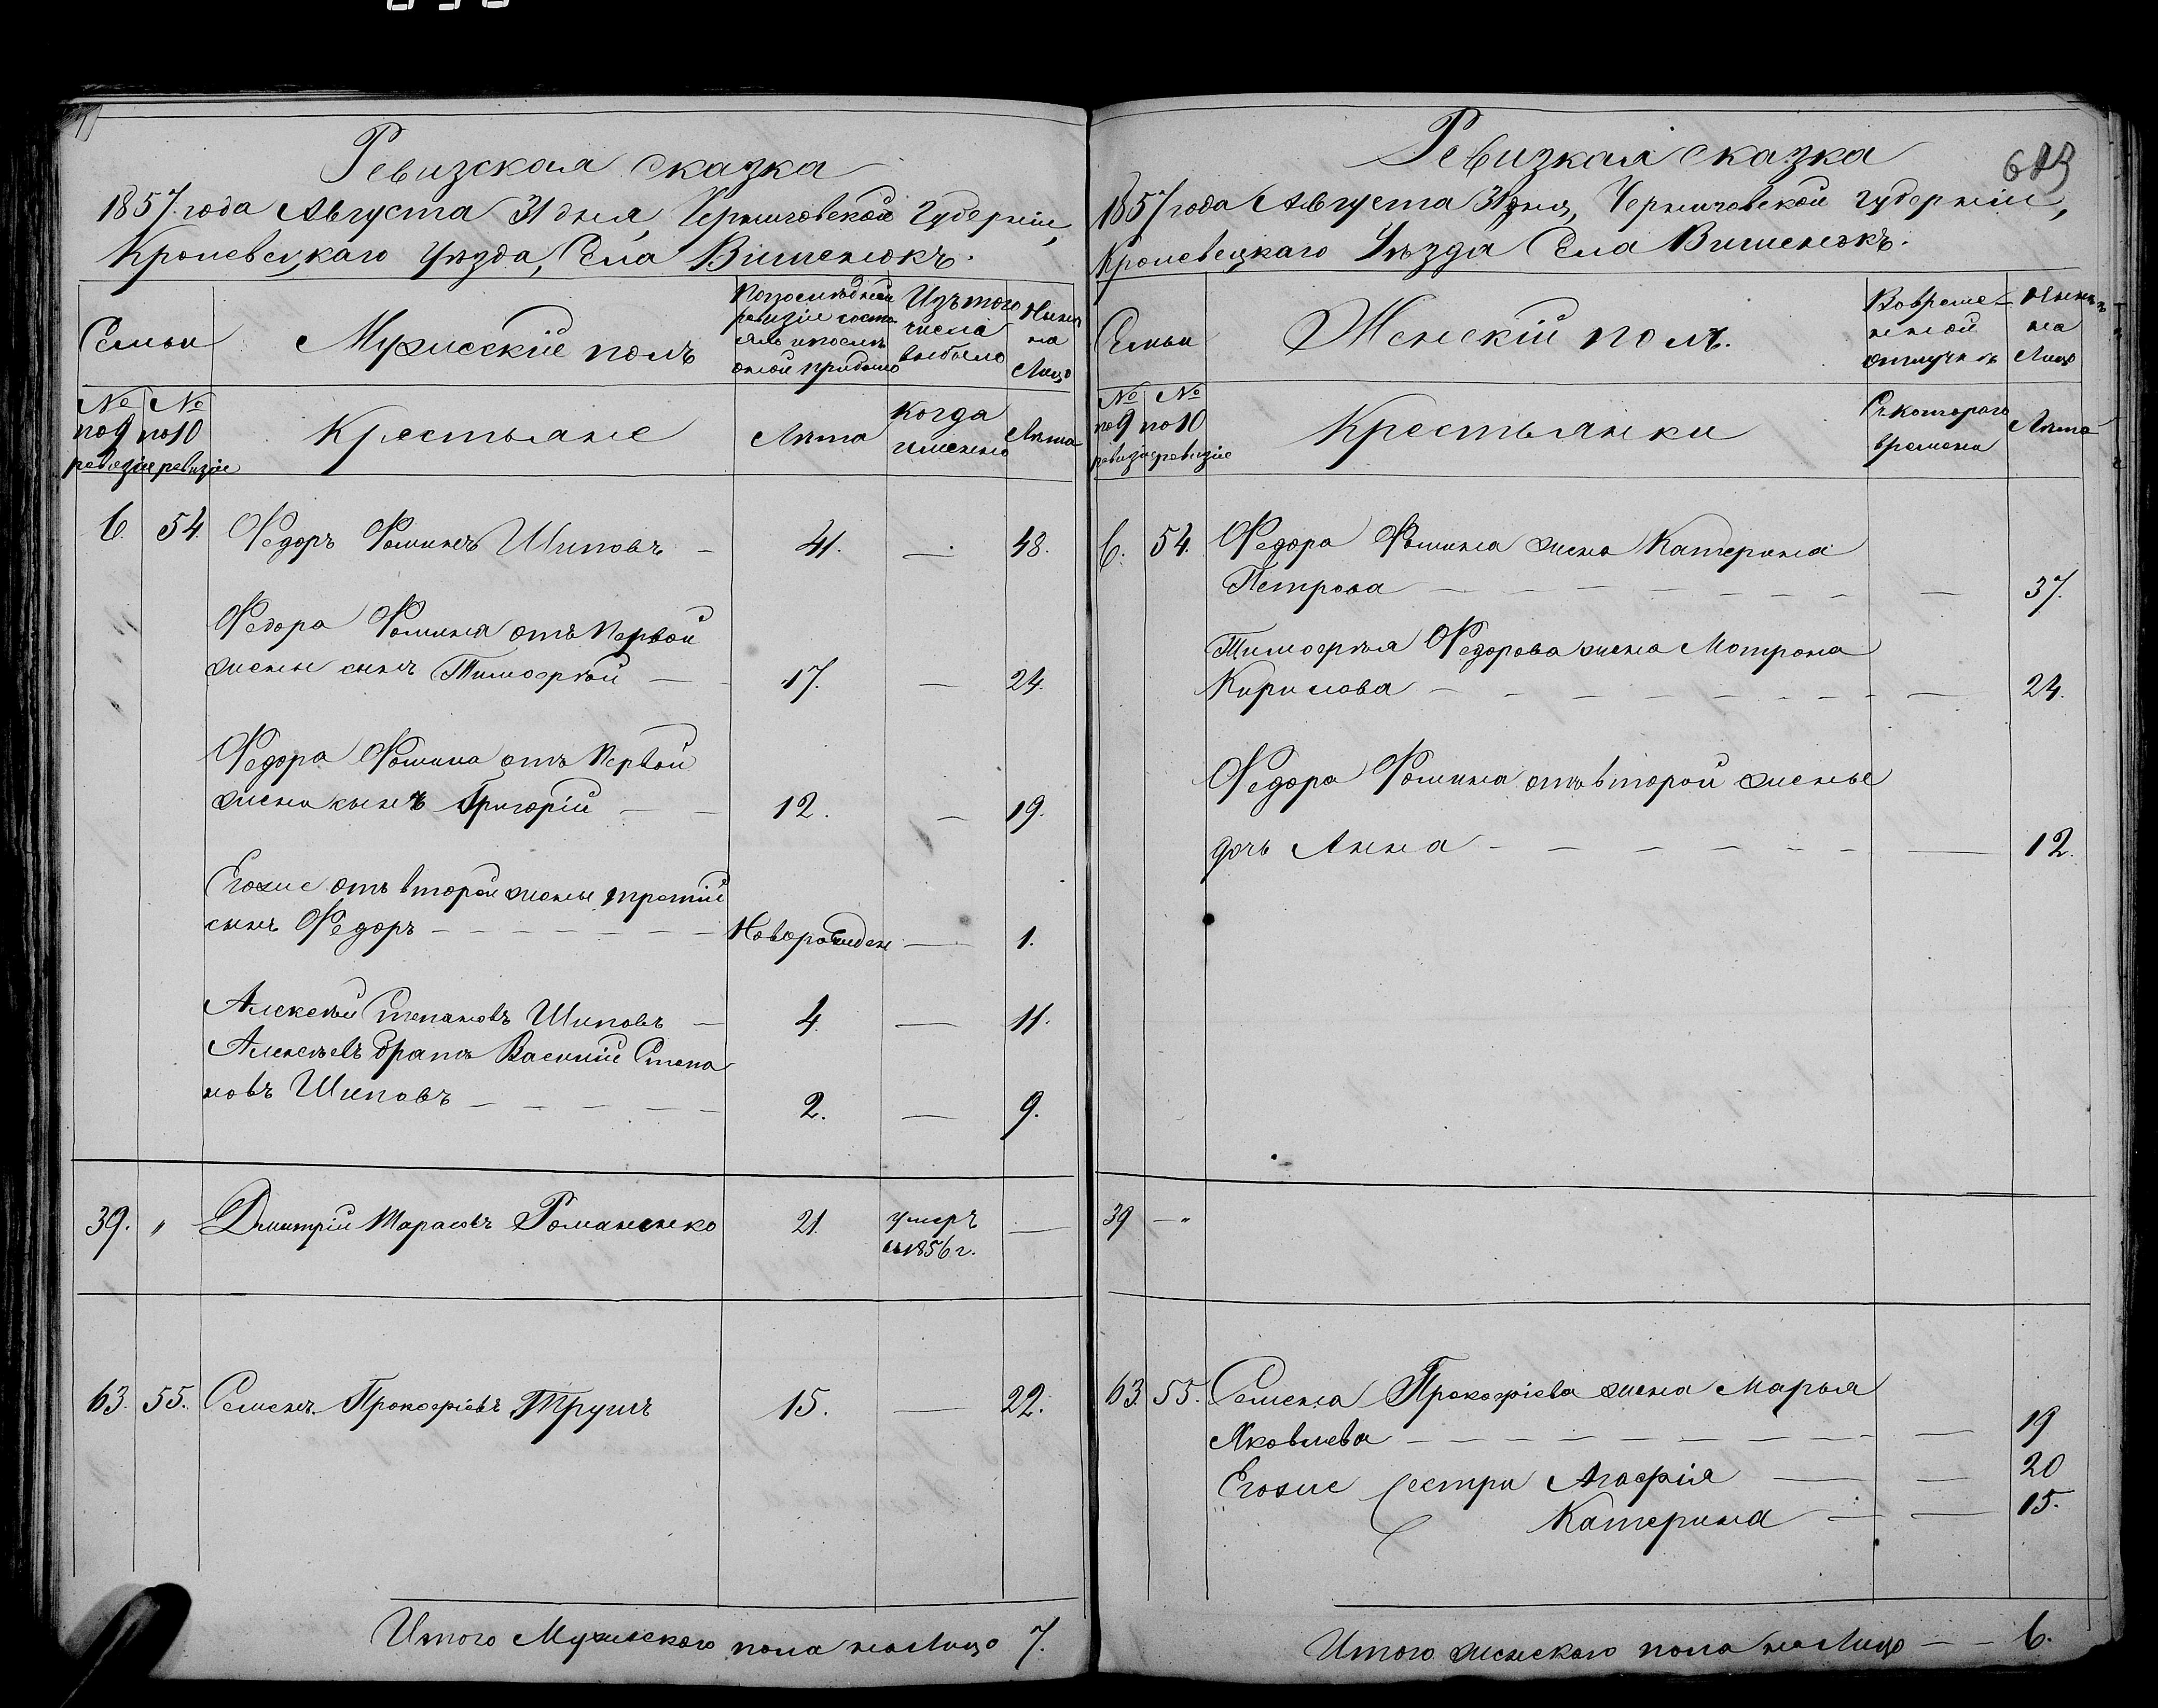 Ревизская сказка
1857. года Августа 31 дня, Черниговской Губерніи,
Кролевецкаго Уѣзда, Села Вишенокъ.
Семьи
Мужескій полъ
По послѣдней
ревизіи состо
яло и послѣ
оной прибыло
Изъ того
числа
выбыло
Нынѣ
на
Лицо
№ №
по 9 по 10
ревизіи ревизіи
Крестьяне
Лѣта
Когда
именно
Лѣта
6. 54. Федоръ Фоминъ Шиповъ — 41. — 48.
Федора Фомина отъ первой
жены сынъ Тимофѣй — 17. — 24.
Федора Фомина отъ первой
жены сынъ Григорій — — 12. — 19.
Егоже отъ второй жены третій
сынъ Федоръ — — — — — — — Новорожден — 1.
Алексѣй Степановъ Шиповъ — 4. — 11.
Алексѣевъ братъ Василій Степа
новъ Шиповъ — — — — — 2. — 9.
39. „ Дмитрій Тарасовъ Романенко 21. умеръ —
въ 1856 г.
63. 55. Семенъ Прокофіевъ Трушъ 15. — 22.
Итого Мужескаго пола на Лицо 7.
Ревизкая сказка
1857 года Августа 31 дня, Черниговской губерніи,
Кролевецкаго Уѣзда Села Вишенокъ.
Семьи
Женскій полъ.
Во време-
нной
отлучкѣ
Нынѣ
на
Лицо
№ №
по 9 по 10
ревизіи ревизіи
Крестьянки
Съ котораго
времени
Лѣта
6. 54. Федора Фомина жена Катерина
Петрова — — — — — — — — 37.
Тимофѣя Федорова жена Мотрона
Кирилова — — — — — — — — — 24.
Федора Фомина отъ второй жены
дочь Анна — — — — — — — — 12.
39 — „
63. 55. Семена Прокофіева жена Марья
Яковлева — — — — — — — — — — 19
Егоже сестры Агафія — — 20
Катерина — — 15.
Итого женскаго пола на Лицо — — 6.